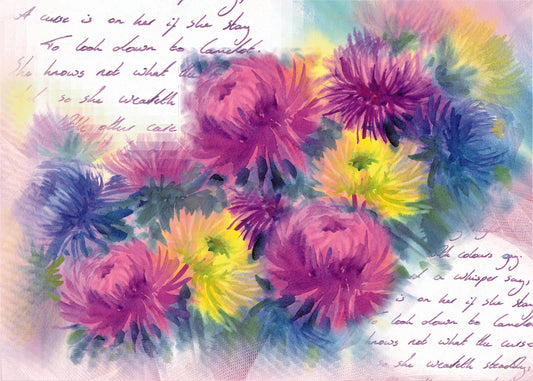 A curse is on her if she stay
To look down to Camelot.
She knows not what the
so she weaveth
other care
with colours gay.
a whisper say,
is on her if she stay
To look down to Camelot
knows not what the curse
so she weaveth steadily,